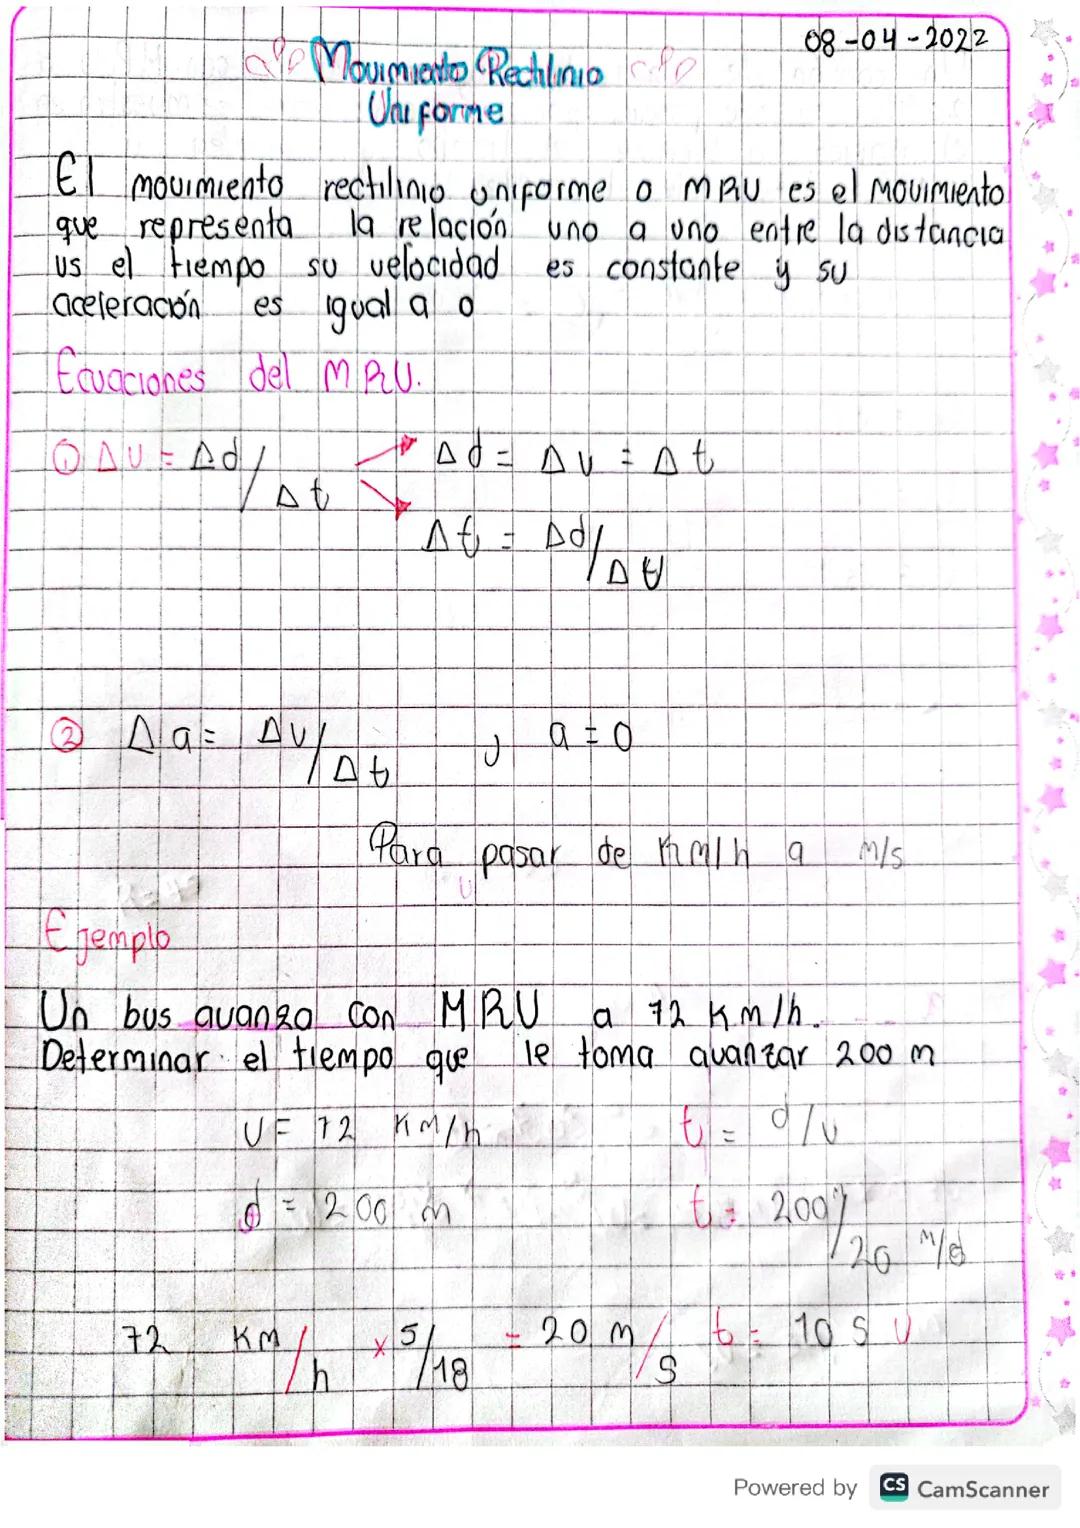 08-04-2022
Movimiento Rectilinio
Uniforme
El movimiento rectilinio uniforme o MRU es el movimiento
que representa la relación uno a uno entre la distancia
vs el tiempo su velocidad es constante y su
aceleración es igual a 0
Ecuaciones del MRU.
① Δv = Δd/Δt
Δd = Δv = Δt
Δt = Δd/Δv
② Δa = Δv/Δt , a = 0
Para pasar de Km/h a m/s
Ejemplo
Un bus avanza con MRU a 72 Km/h.
Determinar el tiempo que le toma avanzar 200 m
v = 72 KM/h t = d/v
d = 200 m t = 200/20 M/s
72 KM/h x 5/18 = 20 m/s t = 10 s
Powered by CS CamScanner